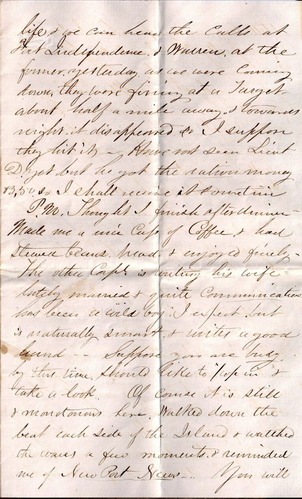 life & we can hear the Calls at
Fort Independence & Warren, at the
former, yesterday as we were Coming
down, they were firing at a Target
about half a mile away & towards
night it disappeared & I suppose
they hit it - Have not seen Lieut
D. yet but he got the ration money
13,50 so I shall receive it sometime
P.M. Thought I finish after dinner
Made me a nice Cup of Coffee & had
Stewed beans, bread, & enjoyed finely -
The other Capt. is writing his wife -
lately married & quite Communicative
has been a wild boy I expect but
is naturally smart & writes a good
hand - Suppose you are busy
by this time. Should like to pop in &
take a look. Of course it is still
& monotonous here. Walked down the
beat each side of the Island & watched
the waves a few moments & reminded
me of New Port News - You will